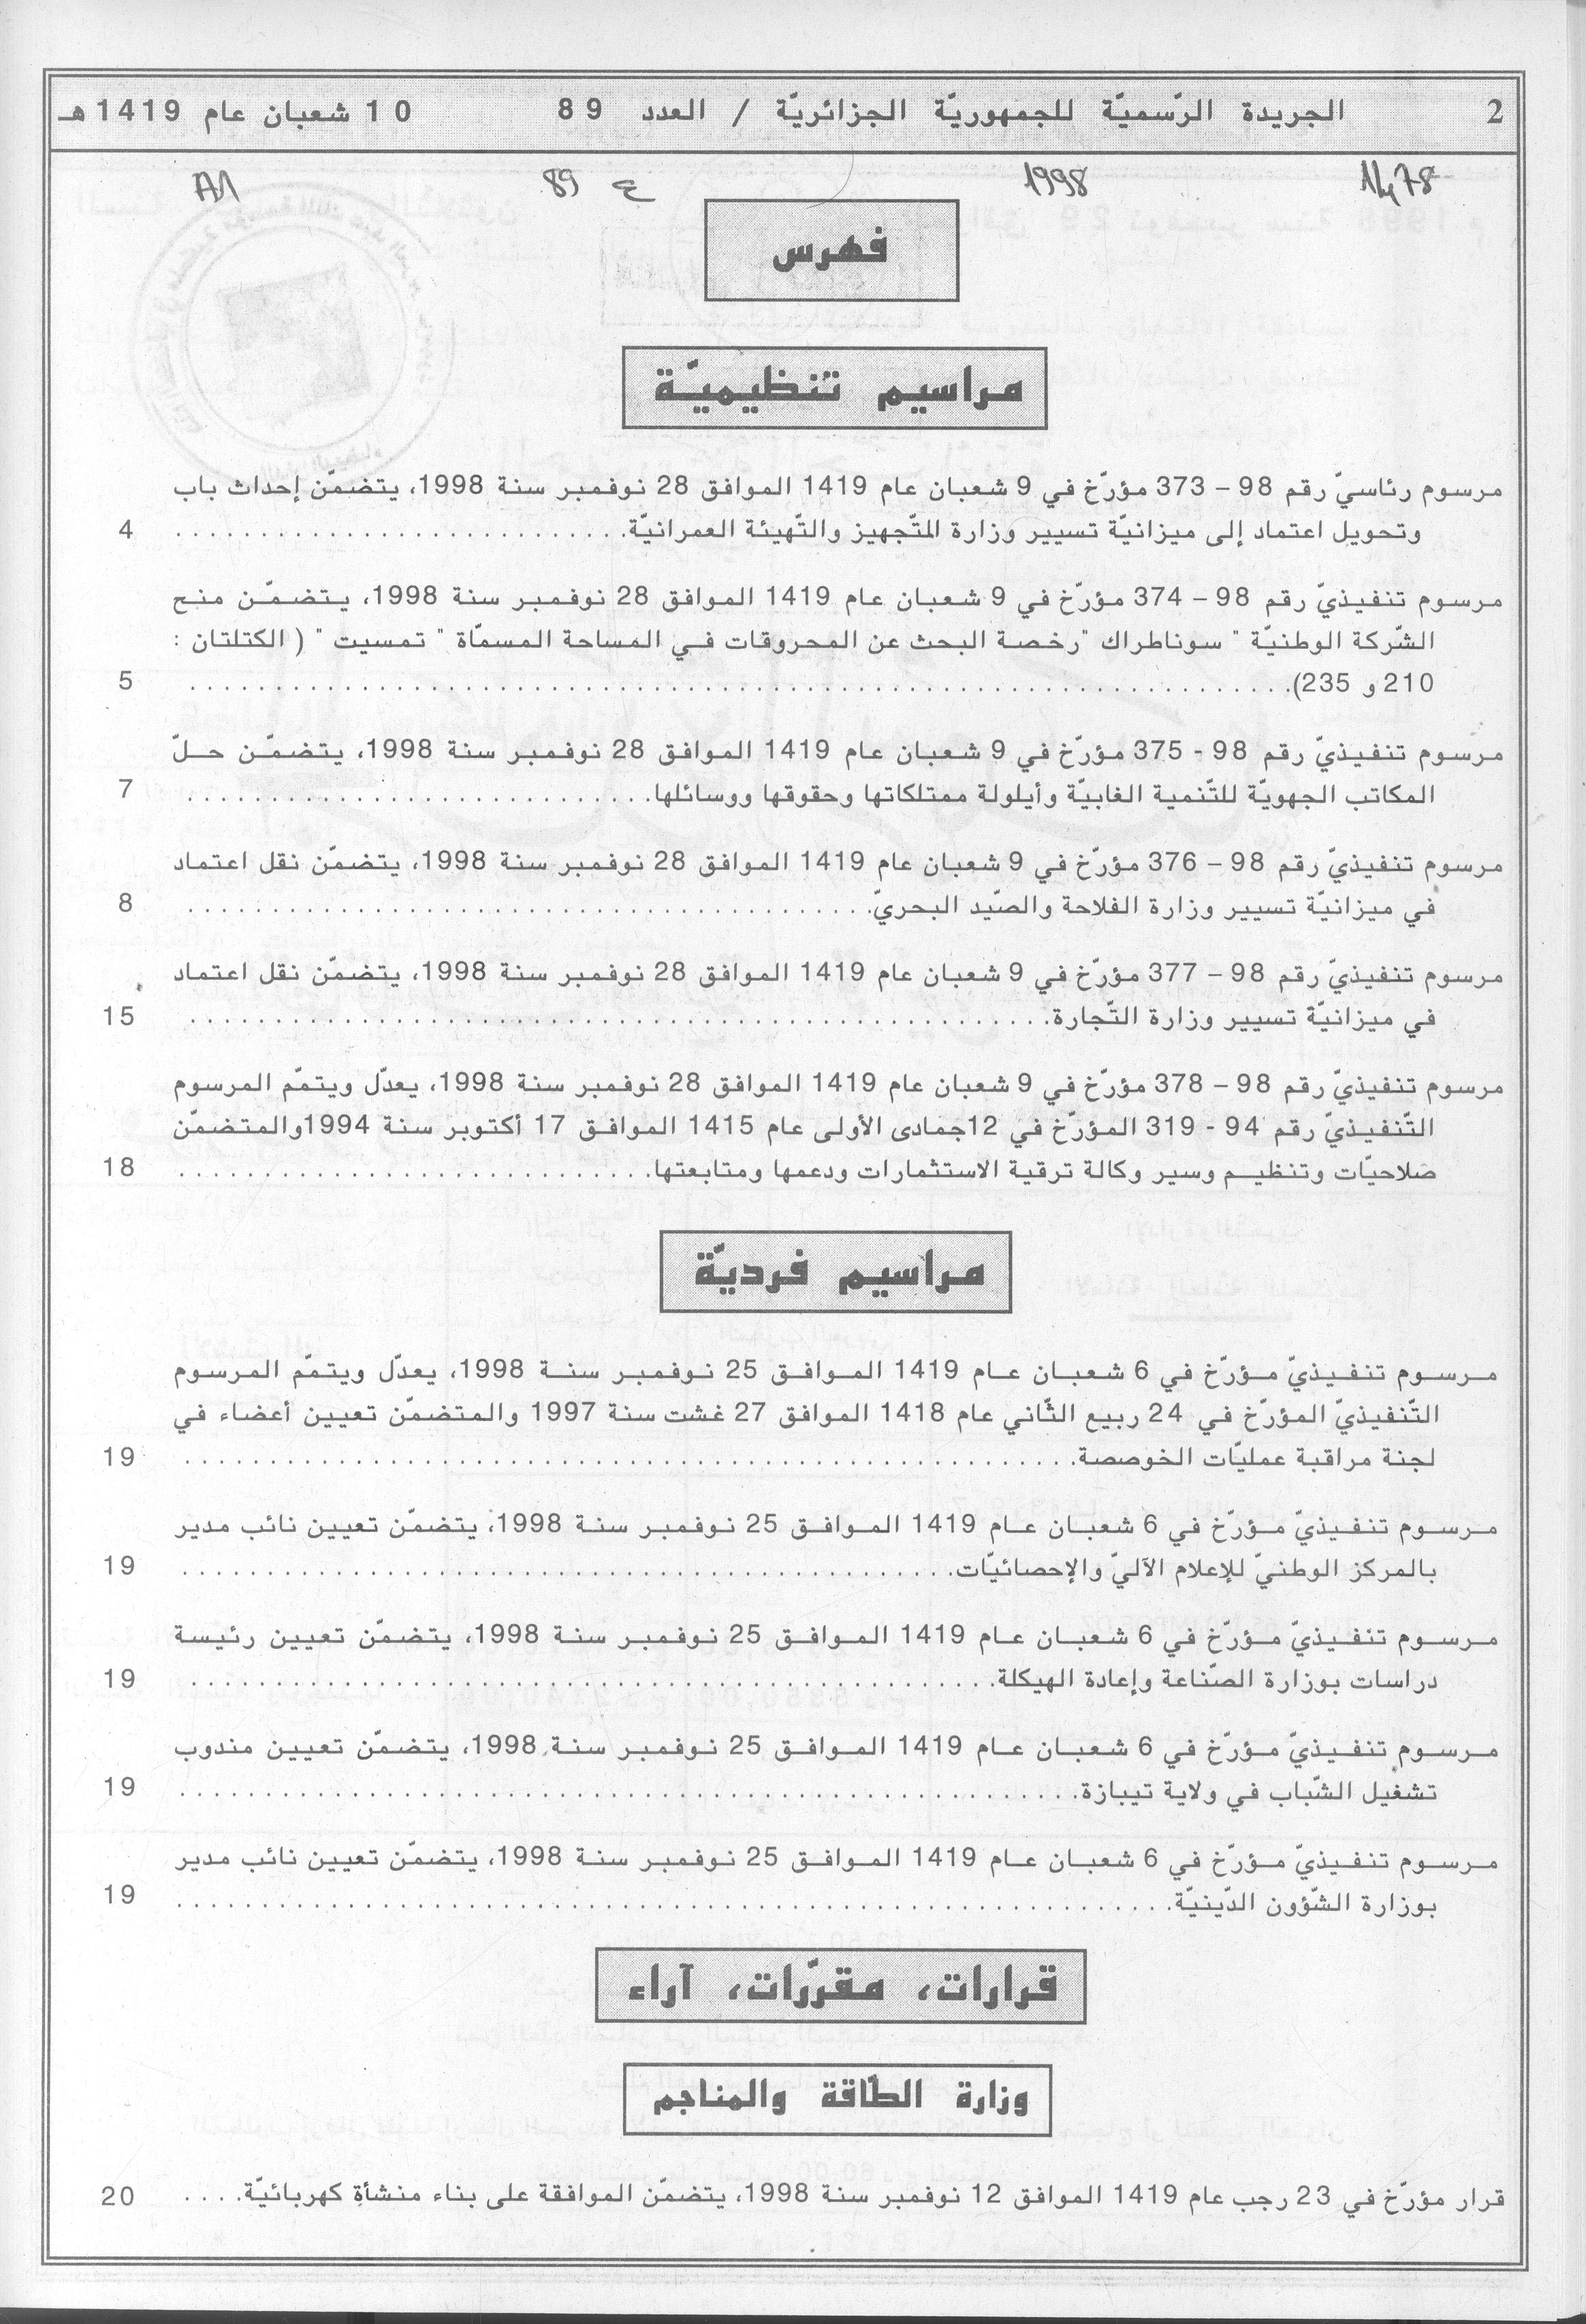 2 الجريدة الرّسميّة للجمهوريّة الجزائريّة / العدد 89 10 شعبان عام 1419 هـ
1998 ع 89 A1
فهرس
مراسيم تنظيميّة
مرسوم رئاسيّ رقم 98 – 373 مؤرّخ في 9 شعبان عام 1419 الموافق 28 نوفمبر سنة 1998، يتضمّن إحداث باب
وتحويل اعتماد إلى ميزانيّة تسيير وزارة التّجهيز والتّهيئة العمرانيّة........................... 4
مرسوم تنفيذيّ رقم 98 – 374 مؤرّخ في 9 شعبان عام 1419 الموافق 28 نوفمبر سنة 1998، يتضمّن منح
الشّركة الوطنيّة " سوناطراك " رخصة البحث عن المحروقات في المساحة المسمّاة " تمسيت " ( الكتلتان :
210 و 235)................................................................ 5
مرسوم تنفيذيّ رقم 98 - 375 مؤرّخ في 9 شعبان عام 1419 الموافق 28 نوفمبر سنة 1998، يتضمّن حلّ
المكاتب الجهويّة للتّنمية الغابيّة وأيلولة ممتلكاتها وحقوقها ووسائلها............................ 7
مرسوم تنفيذيّ رقم 98 – 376 مؤرّخ في 9 شعبان عام 1419 الموافق 28 نوفمبر سنة 1998، يتضمّن نقل اعتماد
في ميزانيّة تسيير وزارة الفلاحة والصّيد البحريّ........................................ 8
مرسوم تنفيذيّ رقم 98 – 377 مؤرّخ في 9 شعبان عام 1419 الموافق 28 نوفمبر سنة 1998، يتضمّن نقل اعتماد
في ميزانيّة تسيير وزارة التّجارة.................................................. 15
مرسوم تنفيذيّ رقم 98 – 378 مؤرّخ في 9 شعبان عام 1419 الموافق 28 نوفمبر سنة 1998، يعدّل ويتمّم المرسوم
التّنفيذيّ رقم 94 - 319 المؤرّخ في 12جمادى الأولى عام 1415 الموافق 17 أكتوبر سنة 1994والمتضمّن
صلاحيّات وتنظيم وسير وكالة ترقية الاستثمارات ودعمها ومتابعتها............................ 18
مراسيم فرديّة
مرسوم تنفيذيّ مؤرّخ في 6 شعبان عام 1419 الموافق 25 نوفمبر سنة 1998، يعدّل ويتمّم المرسوم
التّنفيذيّ المؤرّخ في 24 ربيع الثّاني عام 1418 الموافق 27 غشت سنة 1997 والمتضمّن تعيين أعضاء في
لجنة مراقبة عمليّات الخوصصة.................................................... 19
مرسوم تنفيذيّ مؤرّخ في 6 شعبان عام 1419 الموافق 25 نوفمبر سنة 1998، يتضمّن تعيين نائب مدير
بالمركز الوطنيّ للإعلام الآليّ والإحصائيّات............................................. 19
مرسوم تنفيذيّ مؤرّخ في 6 شعبان عام 1419 الموافق 25 نوفمبر سنة 1998، يتضمّن تعيين رئيسة
دراسات بوزارة الصّناعة وإعادة الهيكلة............................................... 19
مرسوم تنفيذيّ مؤرّخ في 6 شعبان عام 1419 الموافق 25 نوفمبر سنة 1998، يتضمّن تعيين مندوب
تشغيل الشّباب في ولاية تيبازة.................................................... 19
مرسوم تنفيذيّ مؤرّخ في 6 شعبان عام 1419 الموافق 25 نوفمبر سنة 1998، يتضمّن تعيين نائب مدير
بوزارة الشّؤون الدّينيّة.......................................................... 19
قرارات، مقرّرات، آراء
وزارة الطّاقة والمناجم
قرار مؤرّخ في 23 رجب عام 1419 الموافق 12 نوفمبر سنة 1998، يتضمّن الموافقة على بناء منشأة كهربائيّة.... 20